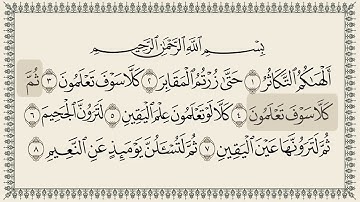 بِسْمِ اللَّهِ الرَّحْمَٰنِ الرَّحِيمِ
أَلْهَىٰكُمُ ٱلتَّكَاثُرُ ١ حَتَّىٰ زُرْتُمُ ٱلْمَقَابِرَ ٢ كَلَّا سَوْفَ تَعْلَمُونَ ٣ ثُمَّ
كَلَّا سَوْفَ تَعْلَمُونَ ٤ كَلَّا لَوْ تَعْلَمُونَ عِلْمَ ٱلْيَقِينِ ٥ لَتَرَوُنَّ ٱلْجَحِيمَ ٦
ثُمَّ لَتَرَوُنَّهَا عَيْنَ ٱلْيَقِينِ ٧ ثُمَّ لَتُسْـَٔلُنَّ يَوْمَئِذٍ عَنِ ٱلنَّعِيمِ ٨